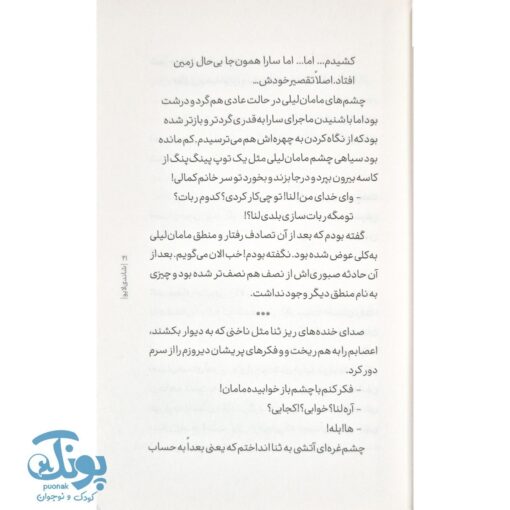 کشیدم... اما... اما سارا همون‌جا بی‌حال زمین
افتاد. اصلاً تقصیر خودش...
چشم‌های مامان لیلی در حالت عادی هم گرد و درشت
بود اما با شنیدن ماجرای سارا به‌قدری گردتر و بازتر شده
بود که از نگاه کردن به چهره‌اش هم می‌ترسیدم. کم مانده
بود سیاهی چشم مامان لیلی مثل یک توپ پینگ‌پنگ از
کاسه بیرون بپرد و درجا بزند و بخورد تو سر خانم کمالی!
- وای خدای من! لنا! تو چی‌کار کردی؟ کدوم ربات؟
تو مگه ربات‌سازی بلدی لنا؟!
گفته بودم که بعد از آن تصادف رفتار و منطق مامان لیلی
به‌کلی عوض شده بود. نگفته بودم! خب الان می‌گویم. بعد از
آن حادثه صبوری‌اش از نصف هم نصف‌تر شده بود و چیزی
به نام منطق دیگر وجود نداشت.
***
صدای خنده‌های ریز ثنا مثل ناخنی که به دیوار بکشند،
اعصابم را به هم ریخت و و فکرهای پریشان دیروزم را از سرم
دور کرد.
- فکر کنم با چشم باز خوابیده مامان!
- آره لنا؟ خوابی؟! کجایی؟
- ها! بله!
چشم‌غره‌ای آتشی به ثنا انداختم که یعنی بعداً به حساب
پونک
puonak
کودک و نوجوان